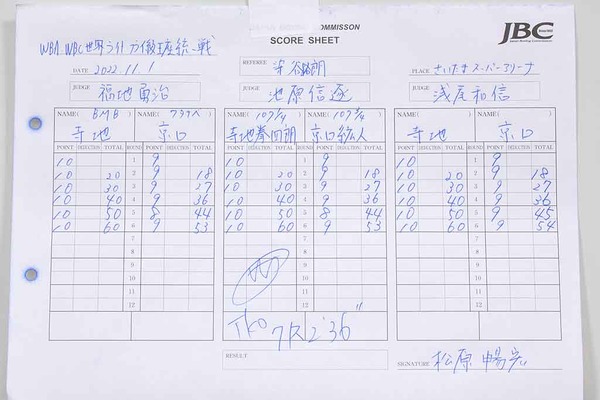 JAPAN BOXING COMMISSON
SCORE SHEET
JBC
WBA.WBC世界ライトフライ級王座統一戦
DATE 2022.11.1
REFEREE
PLACE さいたまスーパーアリーナ
JUDGE 福地勇治
JUDGE 池原信遂
JUDGE 浅尾和信
NAME( BMB ) NAME( ワタナベ ) NAME( 107 1/4 ) NAME( 107 3/4 ) NAME( ) NAME( )
寺地 京口 寺地拳四朗 京口紘人 寺地 京口
POINT DEDUCTION TOTAL ROUND POINT DEDUCTION TOTAL POINT DEDUCTION TOTAL ROUND POINT DEDUCTION TOTAL POINT DEDUCTION TOTAL ROUND POINT DEDUCTION TOTAL
10 1 9 10 1 9 10 1 9
10 20 2 9 18 10 20 2 9 18 10 20 2 9 18
10 30 3 9 27 10 30 3 9 27 10 30 3 9 27
10 40 4 9 36 10 40 4 9 36 10 40 4 9 36
10 50 5 8 44 10 50 5 8 44 10 50 5 9 45
10 60 6 9 53 10 60 6 9 53 10 60 6 9 54
7 7 7
8 8 8
9 9 9
10 10 10
11 11 11
12 12 12
TKO 7R 2'36"
RESULT
SIGNATURE 松原暢宏